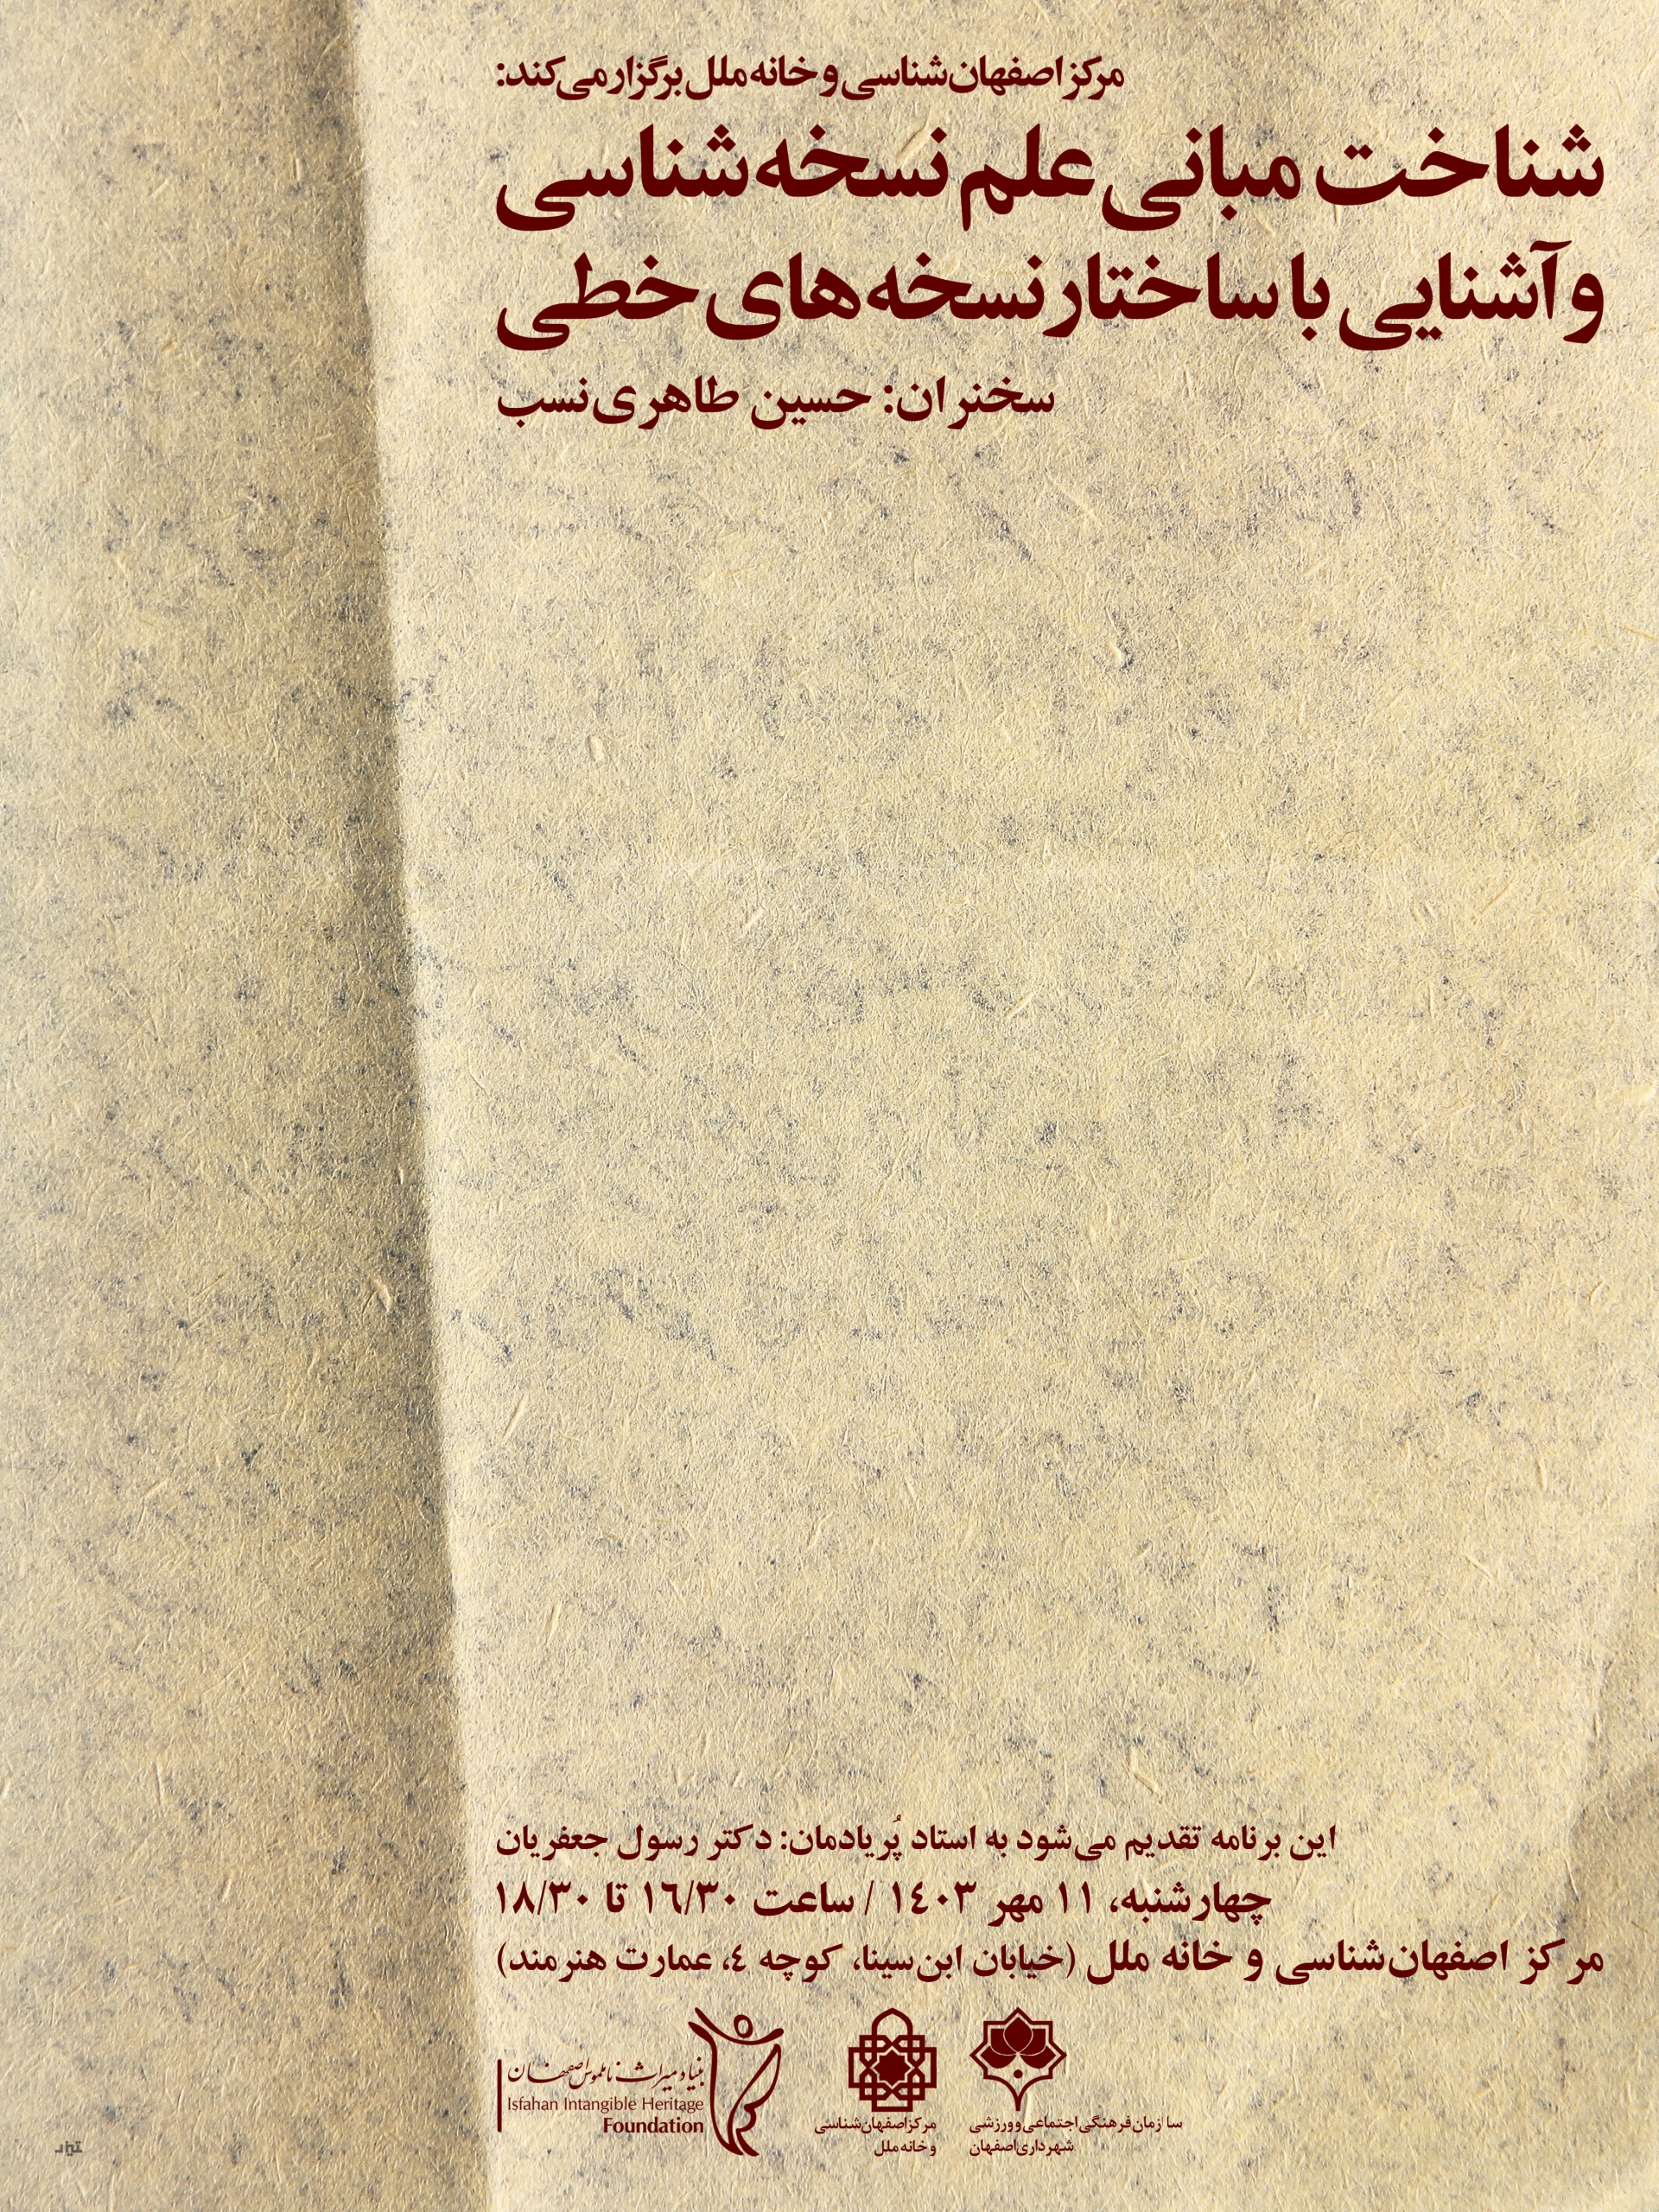 مرکز اصفهان‌شناسی و خانه ملل برگزار می‌کند:
شناخت مبانی علم نسخه‌شناسی
و آشنایی با ساختار نسخه‌های خطی
سخنران: حسین طاهری‌نسب
این برنامه تقدیم می‌شود به استاد پُریادمان: دکتر رسول جعفریان
چهارشنبه، ۱۱ مهر ۱٤۰۳ / ساعت ۱٦/۳۰ تا ۱۸/۳۰
مرکز اصفهان‌شناسی و خانه ملل (خیابان ابن‌سینا، کوچه ٤، عمارت هنرمند)
سازمان فرهنگی اجتماعی و ورزشی
شهرداری اصفهان
مرکز اصفهان‌شناسی
و خانه ملل
بنیاد میراث ناملموس اصفهان
Isfahan Intangible Heritage
Foundation